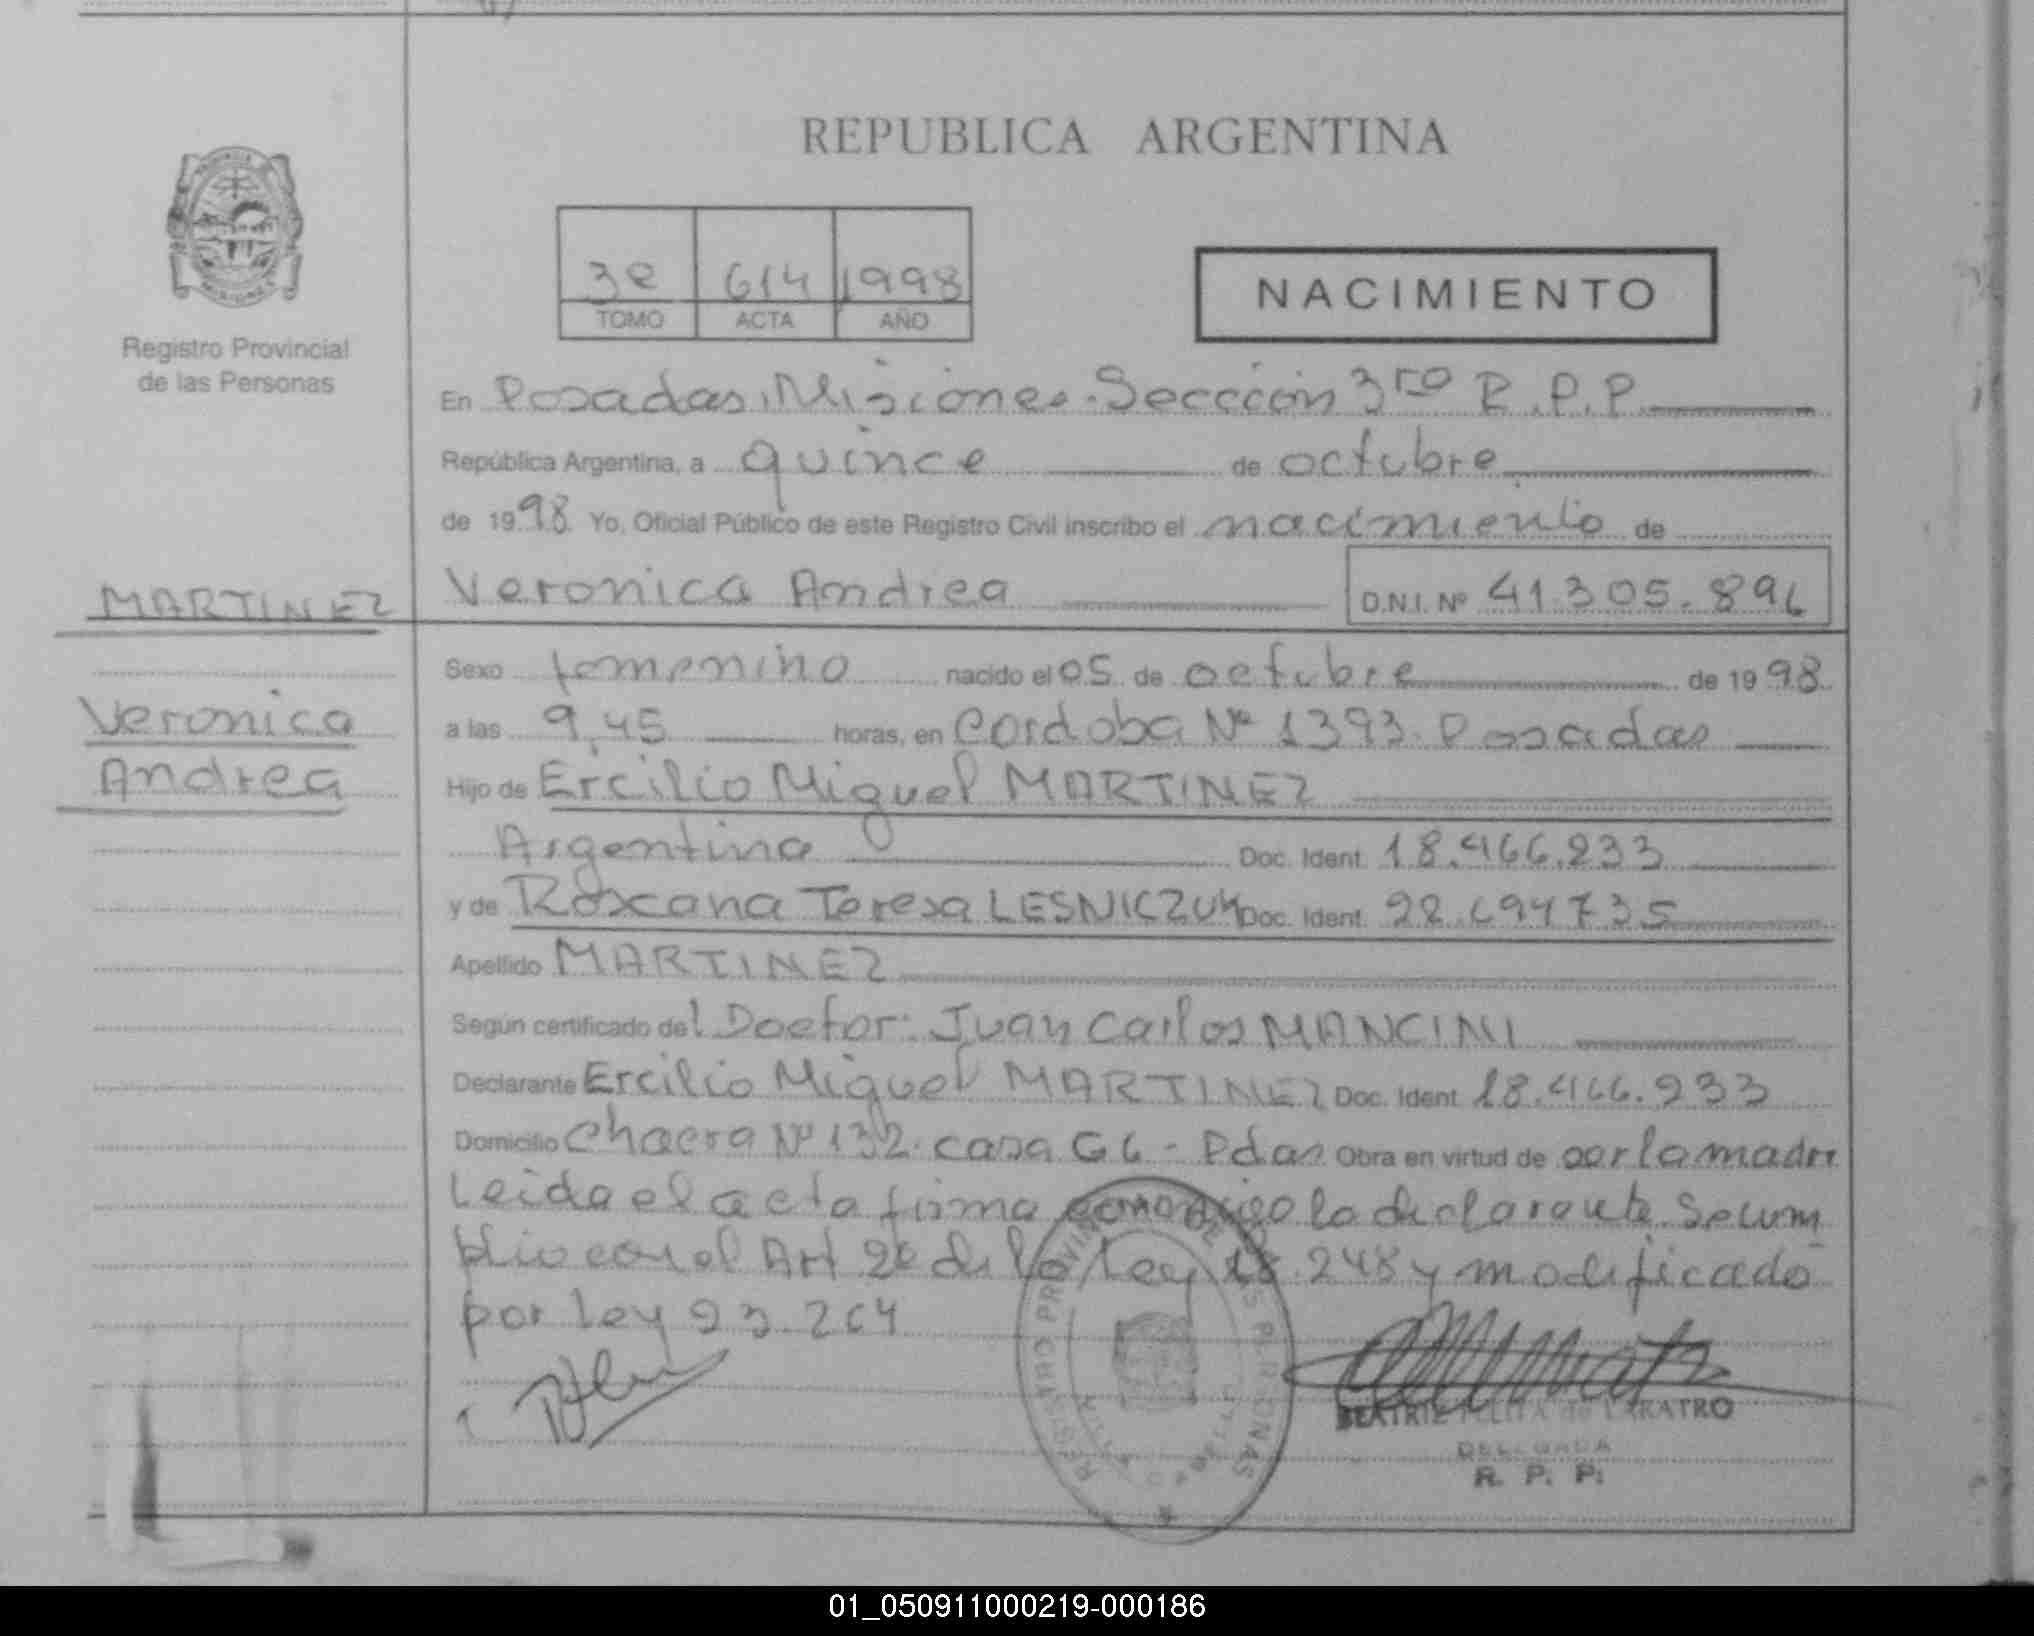 REPUBLICA ARGENTINA
Registro Provincial
de las Personas
3e 614 1998
TOMO ACTA AÑO
NACIMIENTO
En Posadas, Misiones. Seccion 3ro R.P.P.
República Argentina, a quince de octubre
de 1998 Yo, Oficial Público de este Registro Civil inscribo el nacimiento de
MARTINEZ
Veronica Andrea D.N.I. Nº 41.305.896
Sexo femenino nacido el 05 de octubre de 1998
Veronica
a las 9,45 horas, en Cordoba Nº 1393. Posadas
Andrea
Hijo de Ercilio Miguel MARTINEZ
Argentina Doc. Ident. 18.466.233
y de Roxana Teresa LESNICZUK Doc. Ident. 28.694735
Apellido MARTINEZ
Según certificado del Doctor: Juan Carlos MANCINI
Declarante Ercilio Miguel MARTINEZ Doc. Ident. 18.466.233
Domicilio Chacra Nº 132. casa G6 - Pdas Obra en virtud de por la madre
Leida el acta firma conmigo la declarante. Se cum
plio con el Art 2º de la Ley 18.248 y modificado
por Ley 23.264
REGISTRO PROVINCIAL DE LAS PERSONAS
BEATRIZ de
DELEGADA
R. P. P.
01_050911000219-000186